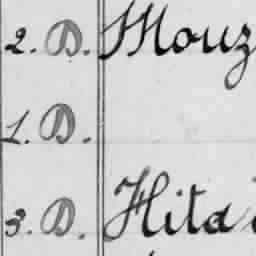 2. D. Mouz
1. D.
3. D. Hita